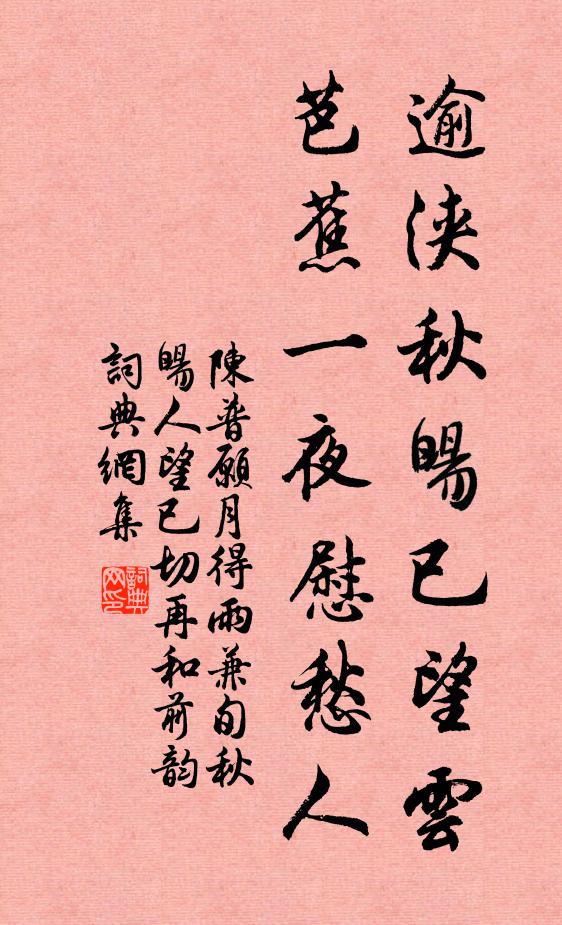 逾浹秋暘已望雲
芭蕉一夜慰愁人
陳普願月得雨兼旬秋
暘人望已切再和前韵
詞典網集
詞典网印